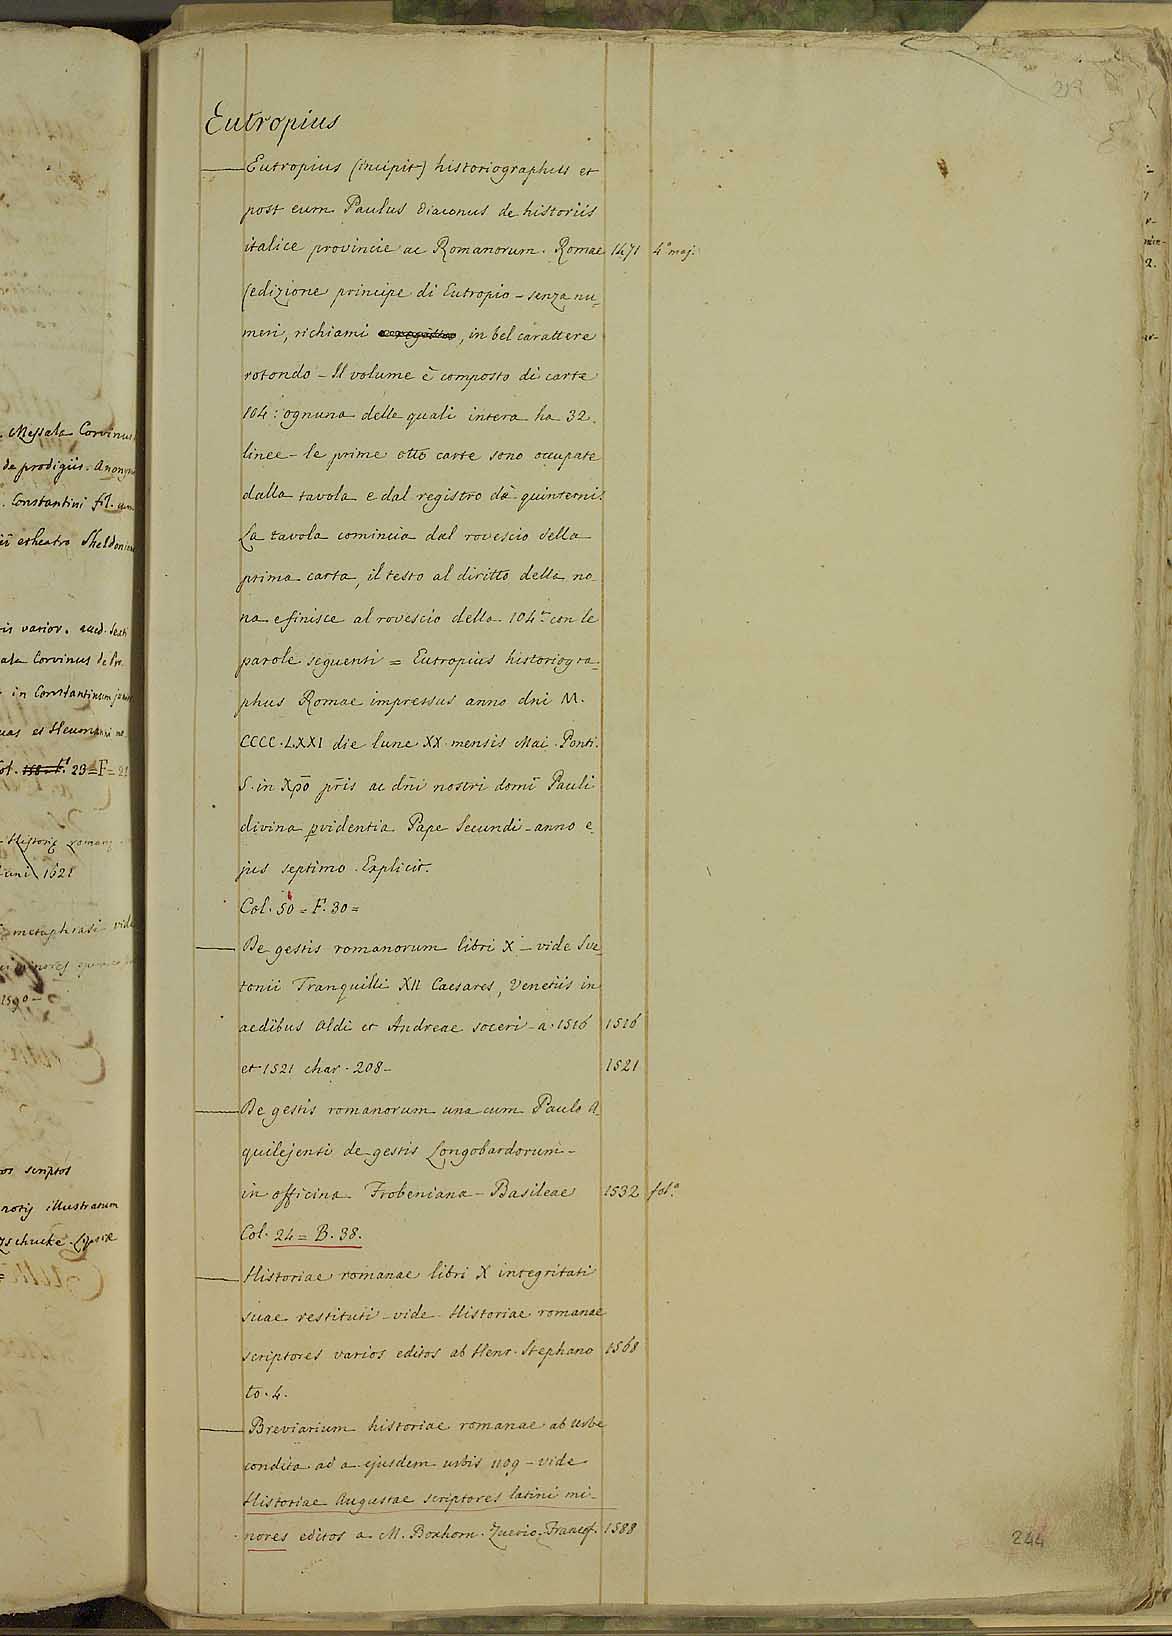 219
Eutropius
Eutropius (incipit) historiographus et
post eum Paulus Diaconus de historiis
italice provincie ac Romanorum. Romae 1471 4.º maj.
(edizione principe di Eutropio - senza nu-
meri, richiami, in bel carattere
rotondo - Il volume è composto di carte
104: ognuna delle quali intera ha 32.
linee - le prime otto carte sono occupate
dalla tavola e dal registro dà quinterni.
La tavola comincia dal rovescio della
prima carta, il testo al diritto della no-
na e finisce al rovescio della 104.a con le
parole seguenti = Eutropius historiogra-
phus Romae impressus anno dni M.
CCCC.LXXI die lune XX mensis Mai. Ponti.
S. in Xpõ pr̃is ac dñi nostri domi Pauli
divina pvidentia Pape Secundi - anno e-
jus septimo. Explicit.
Col. 50 = F. 30 =
De gestis romanorum libri X - vide Sve-
tonii Tranquilli XII Caesares, Venetiis in
aedibus Aldi et Andreae soceri - a. 1516 1516
et 1521 char. 208 - 1521
De gestis romanorum una cum Paulo A-
quilejensi de gestis Longobardorum -
in officina Frobeniana - Basileae 1532 fol.º
Col. 24 = B. 38.
Historiae romanae libri X integritati
suae restituti - vide Historiae romanae
scriptores varios editos ab Henr. Stephano 1568
to. 4.
Breviarium historiae romanae ab Urbe
condita ad a. ejusdem urbis 1109 - vide
Historiae Augustae scriptores latini mi-
nores editos a M. Boxhorn. Zuerio. Francof. 1588
244
. Messala Corvinus
de prodigiis. Anonym
. Constantini fil. cum
Sheldonian
varior.
Corvinus de
in Constantinum
et Heumanni
29 = F = 21
Historię romanę
1521
metaphrasi vide
minores
1590 -
scriptos
notis illustratum
Tzschucke. Lipsiæ